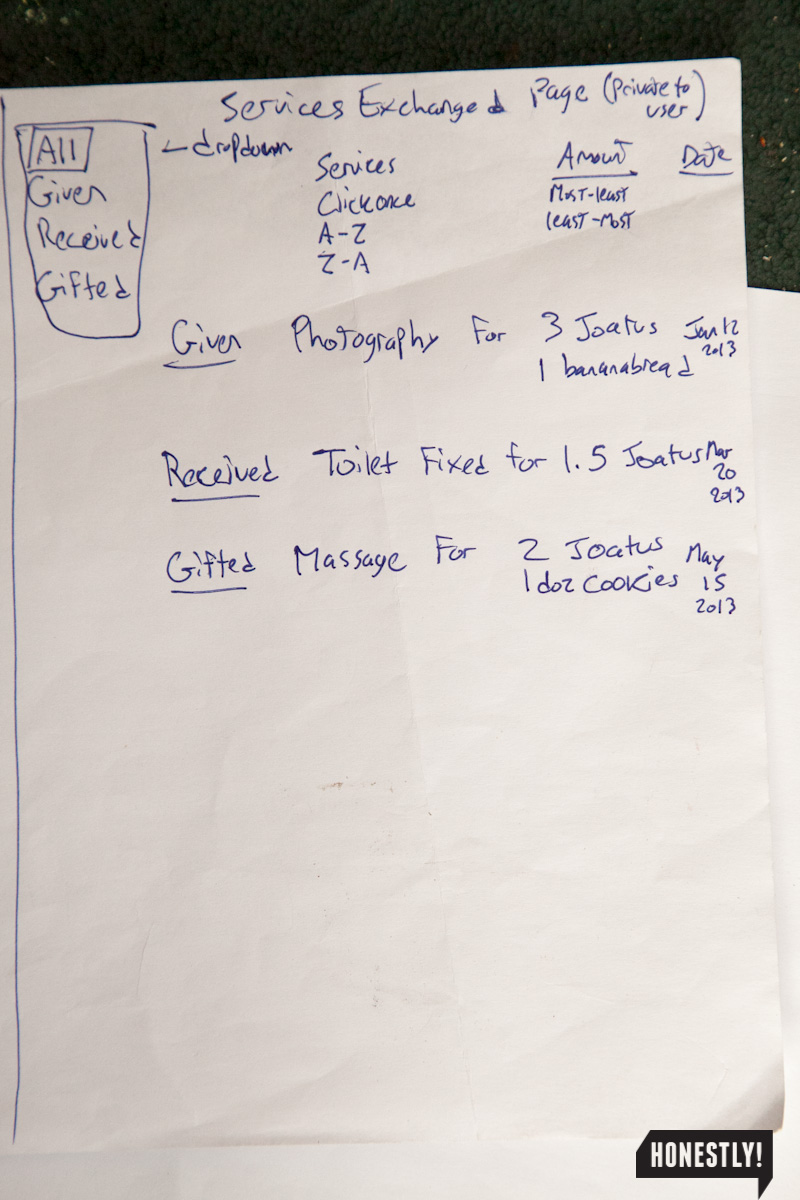 Services Exchanged Page (private to user)
All
Given
Received
Gifted
– dropdown
Services
Click once
A-Z
Z-A
Amount
Most-least
least-Most
Date
Given Photography For 3 Joatus Jan 12
1 bananabread 2013
Received Toilet Fixed for 1.5 Joatus Mar
20
2013
Gifted Massage For 2 Joatus May
1 doz cookies 15
2013
HONESTLY!